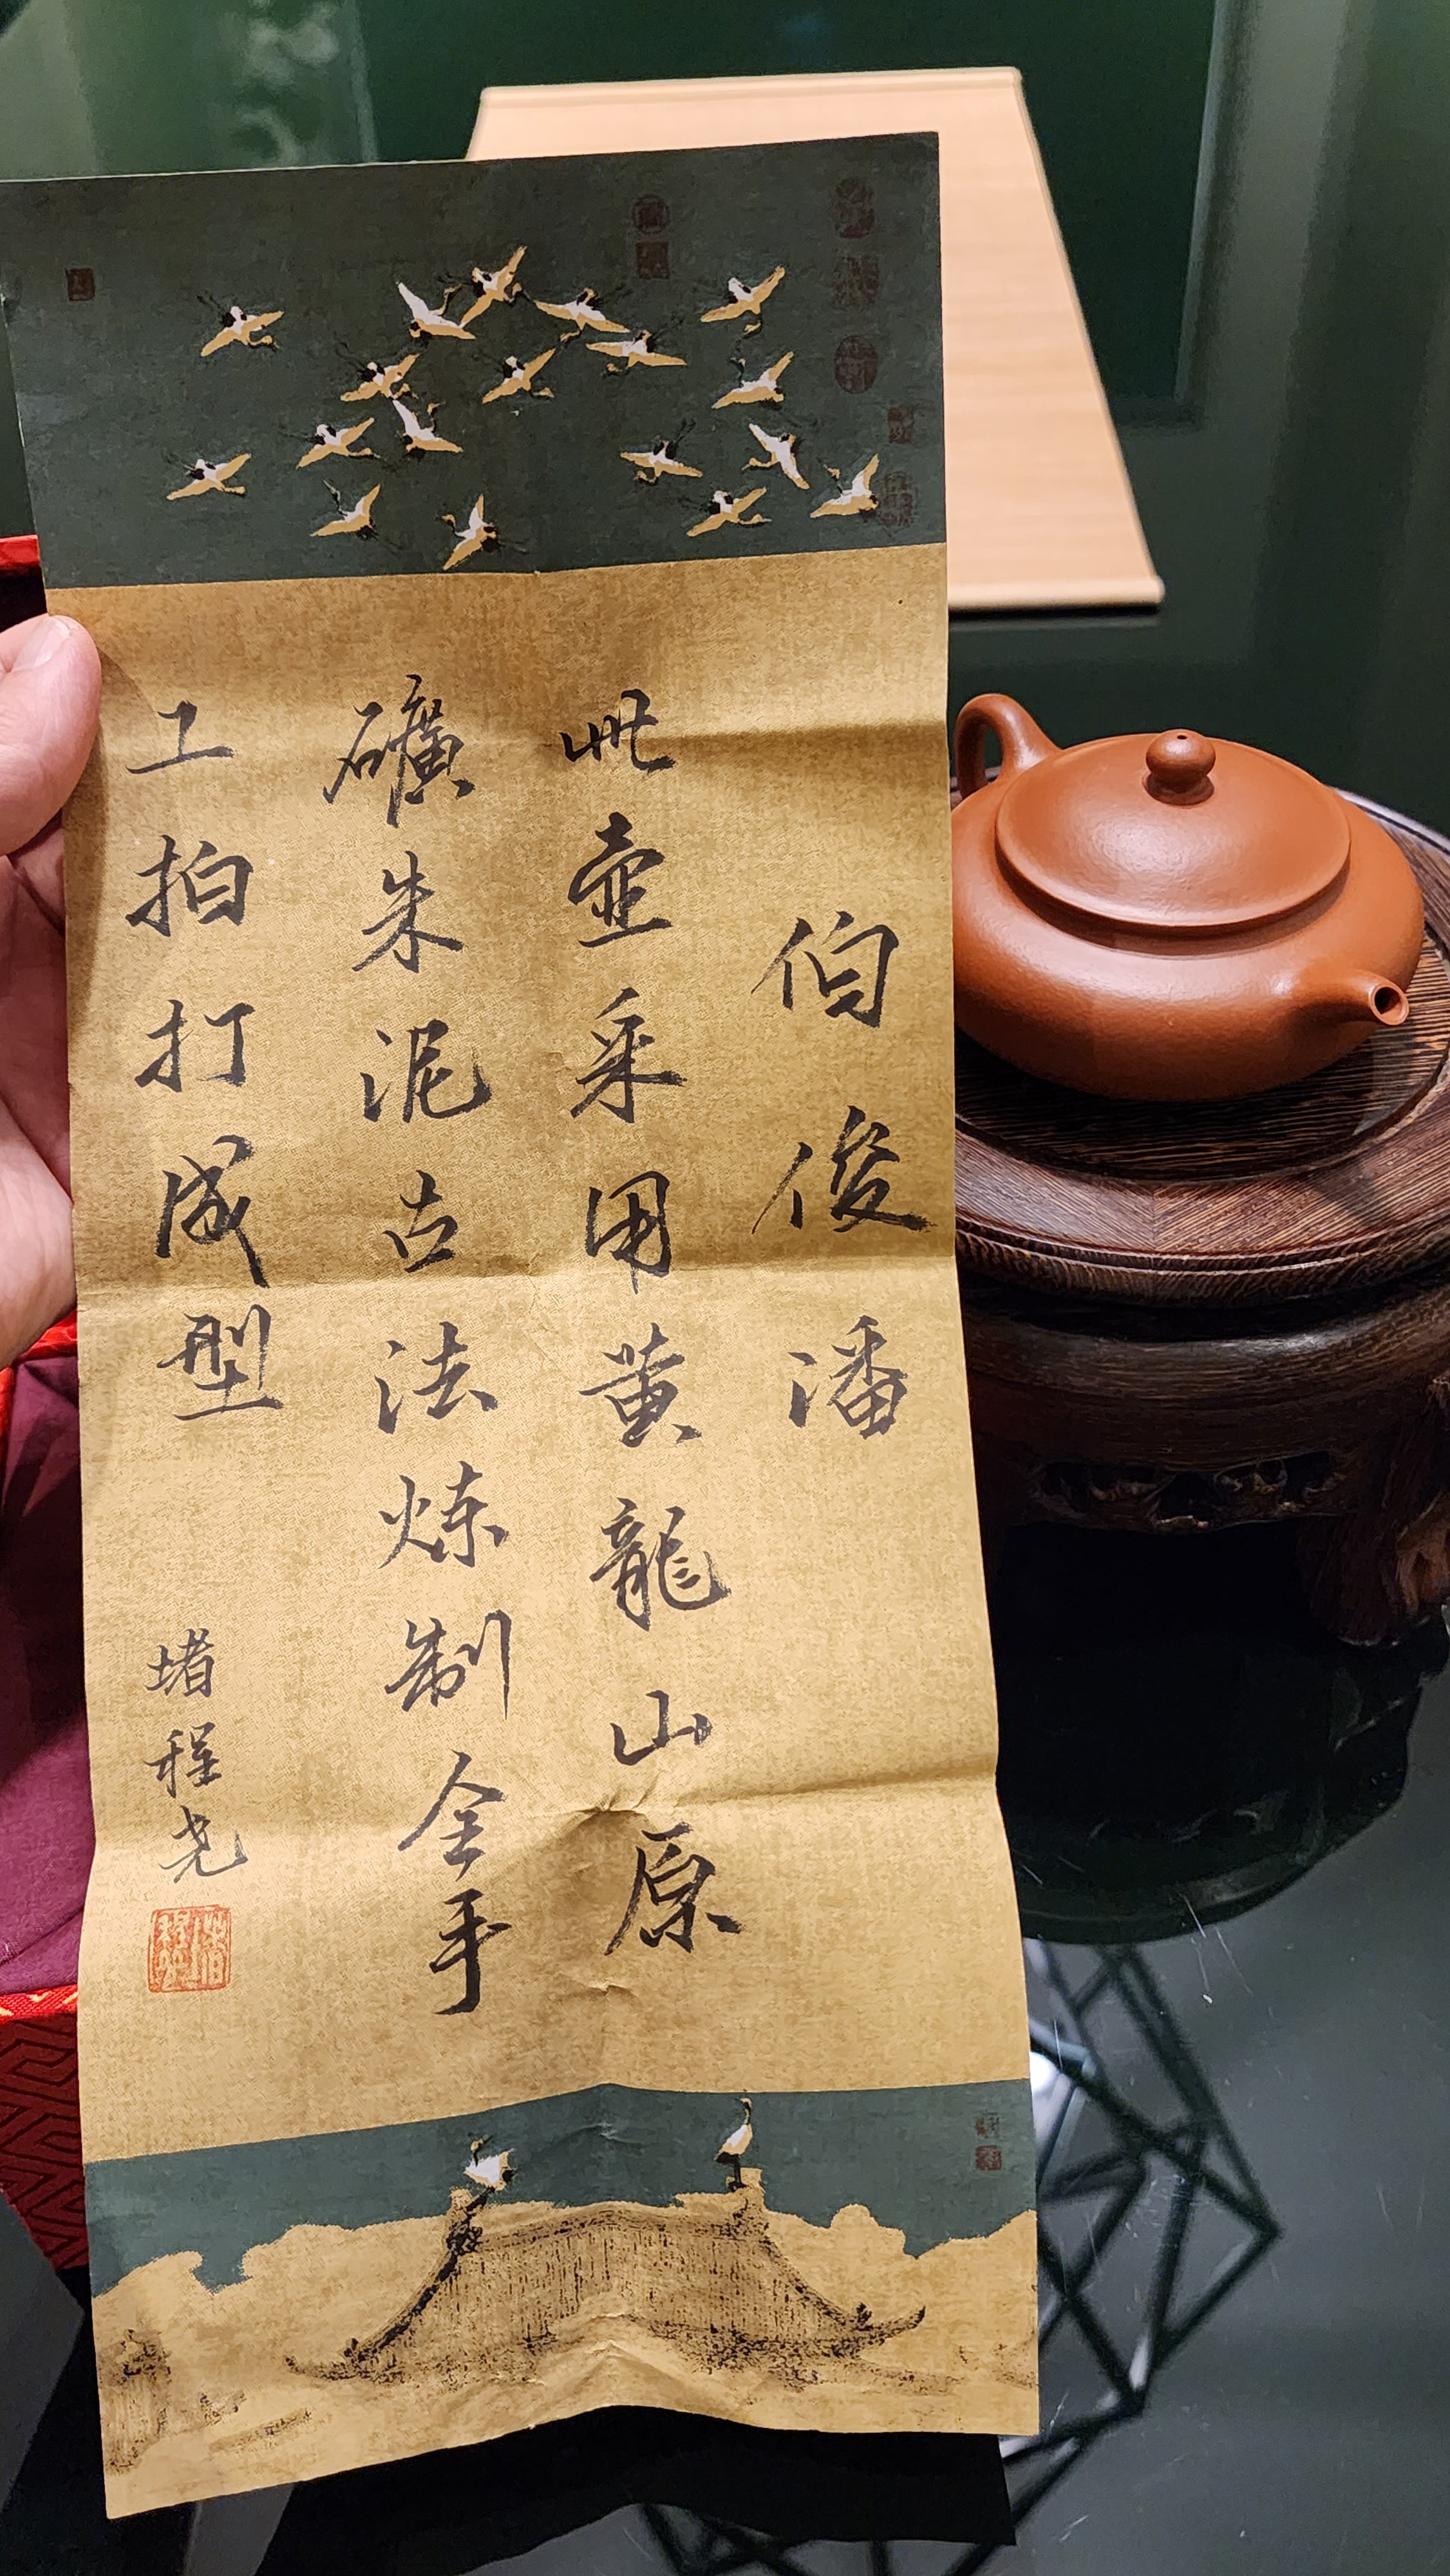 伯俊潘
此壶采用黄龍山原
礦朱泥古法炼制全手
工拍打成型
堵程尧